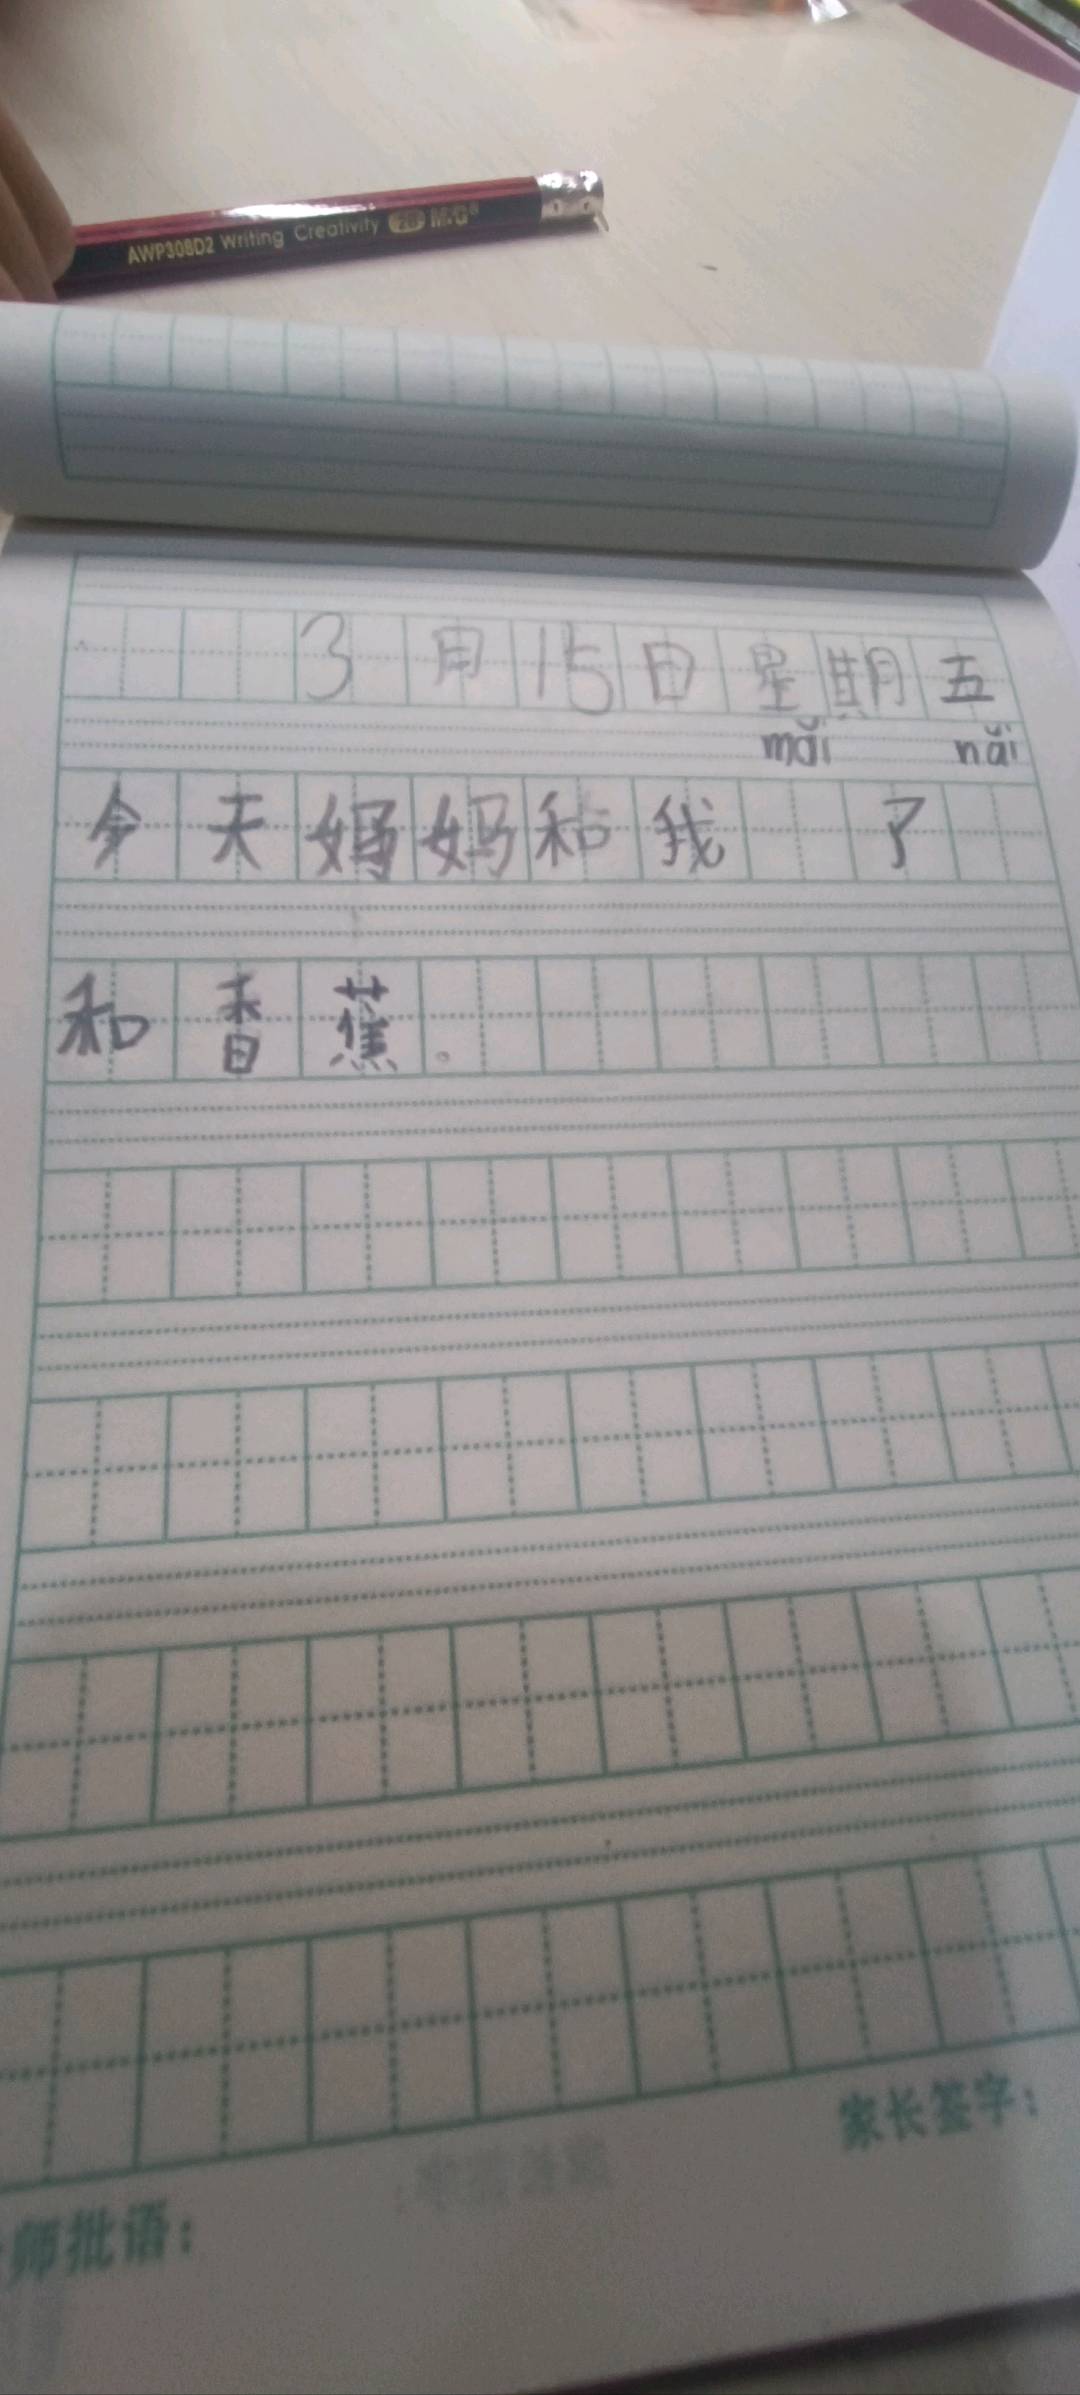 AWP308D2 Writing Creativity 2B M&G®
3月15日星期五
mǎi nǎi
今天妈妈和我 了
和香蕉。
家长签字：
师批语：